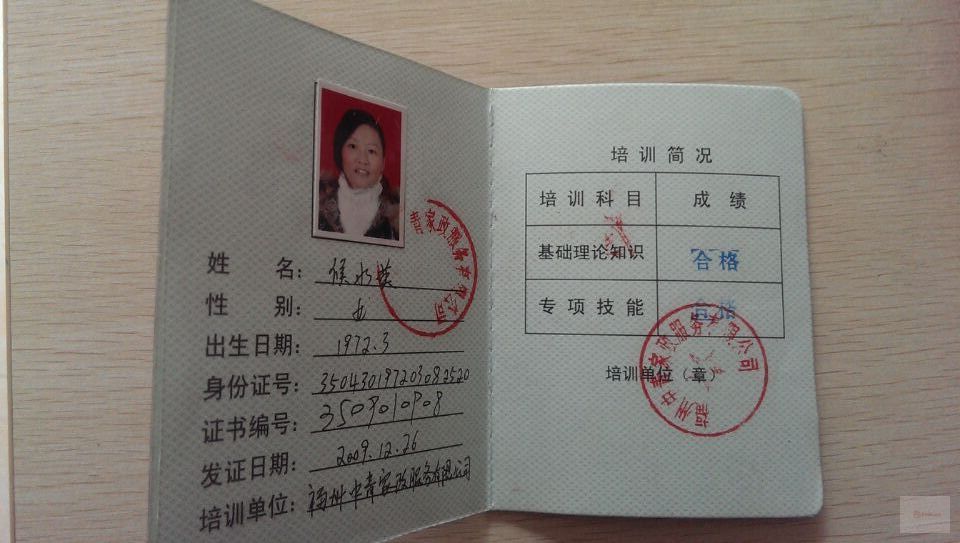 姓 名: 候水英
性 别: 女
出生日期: 1972.3
身份证号: 350430197203082520
证书编号: 3509010908
发证日期: 2009.12.26
培训单位: 福州中青家政服务有限公司
青家政服务有限公司
培训简况
培训科目 成绩
基础理论知识 合格
专项技能 合格
培训单位(章)
福州中青家政服务有限公司